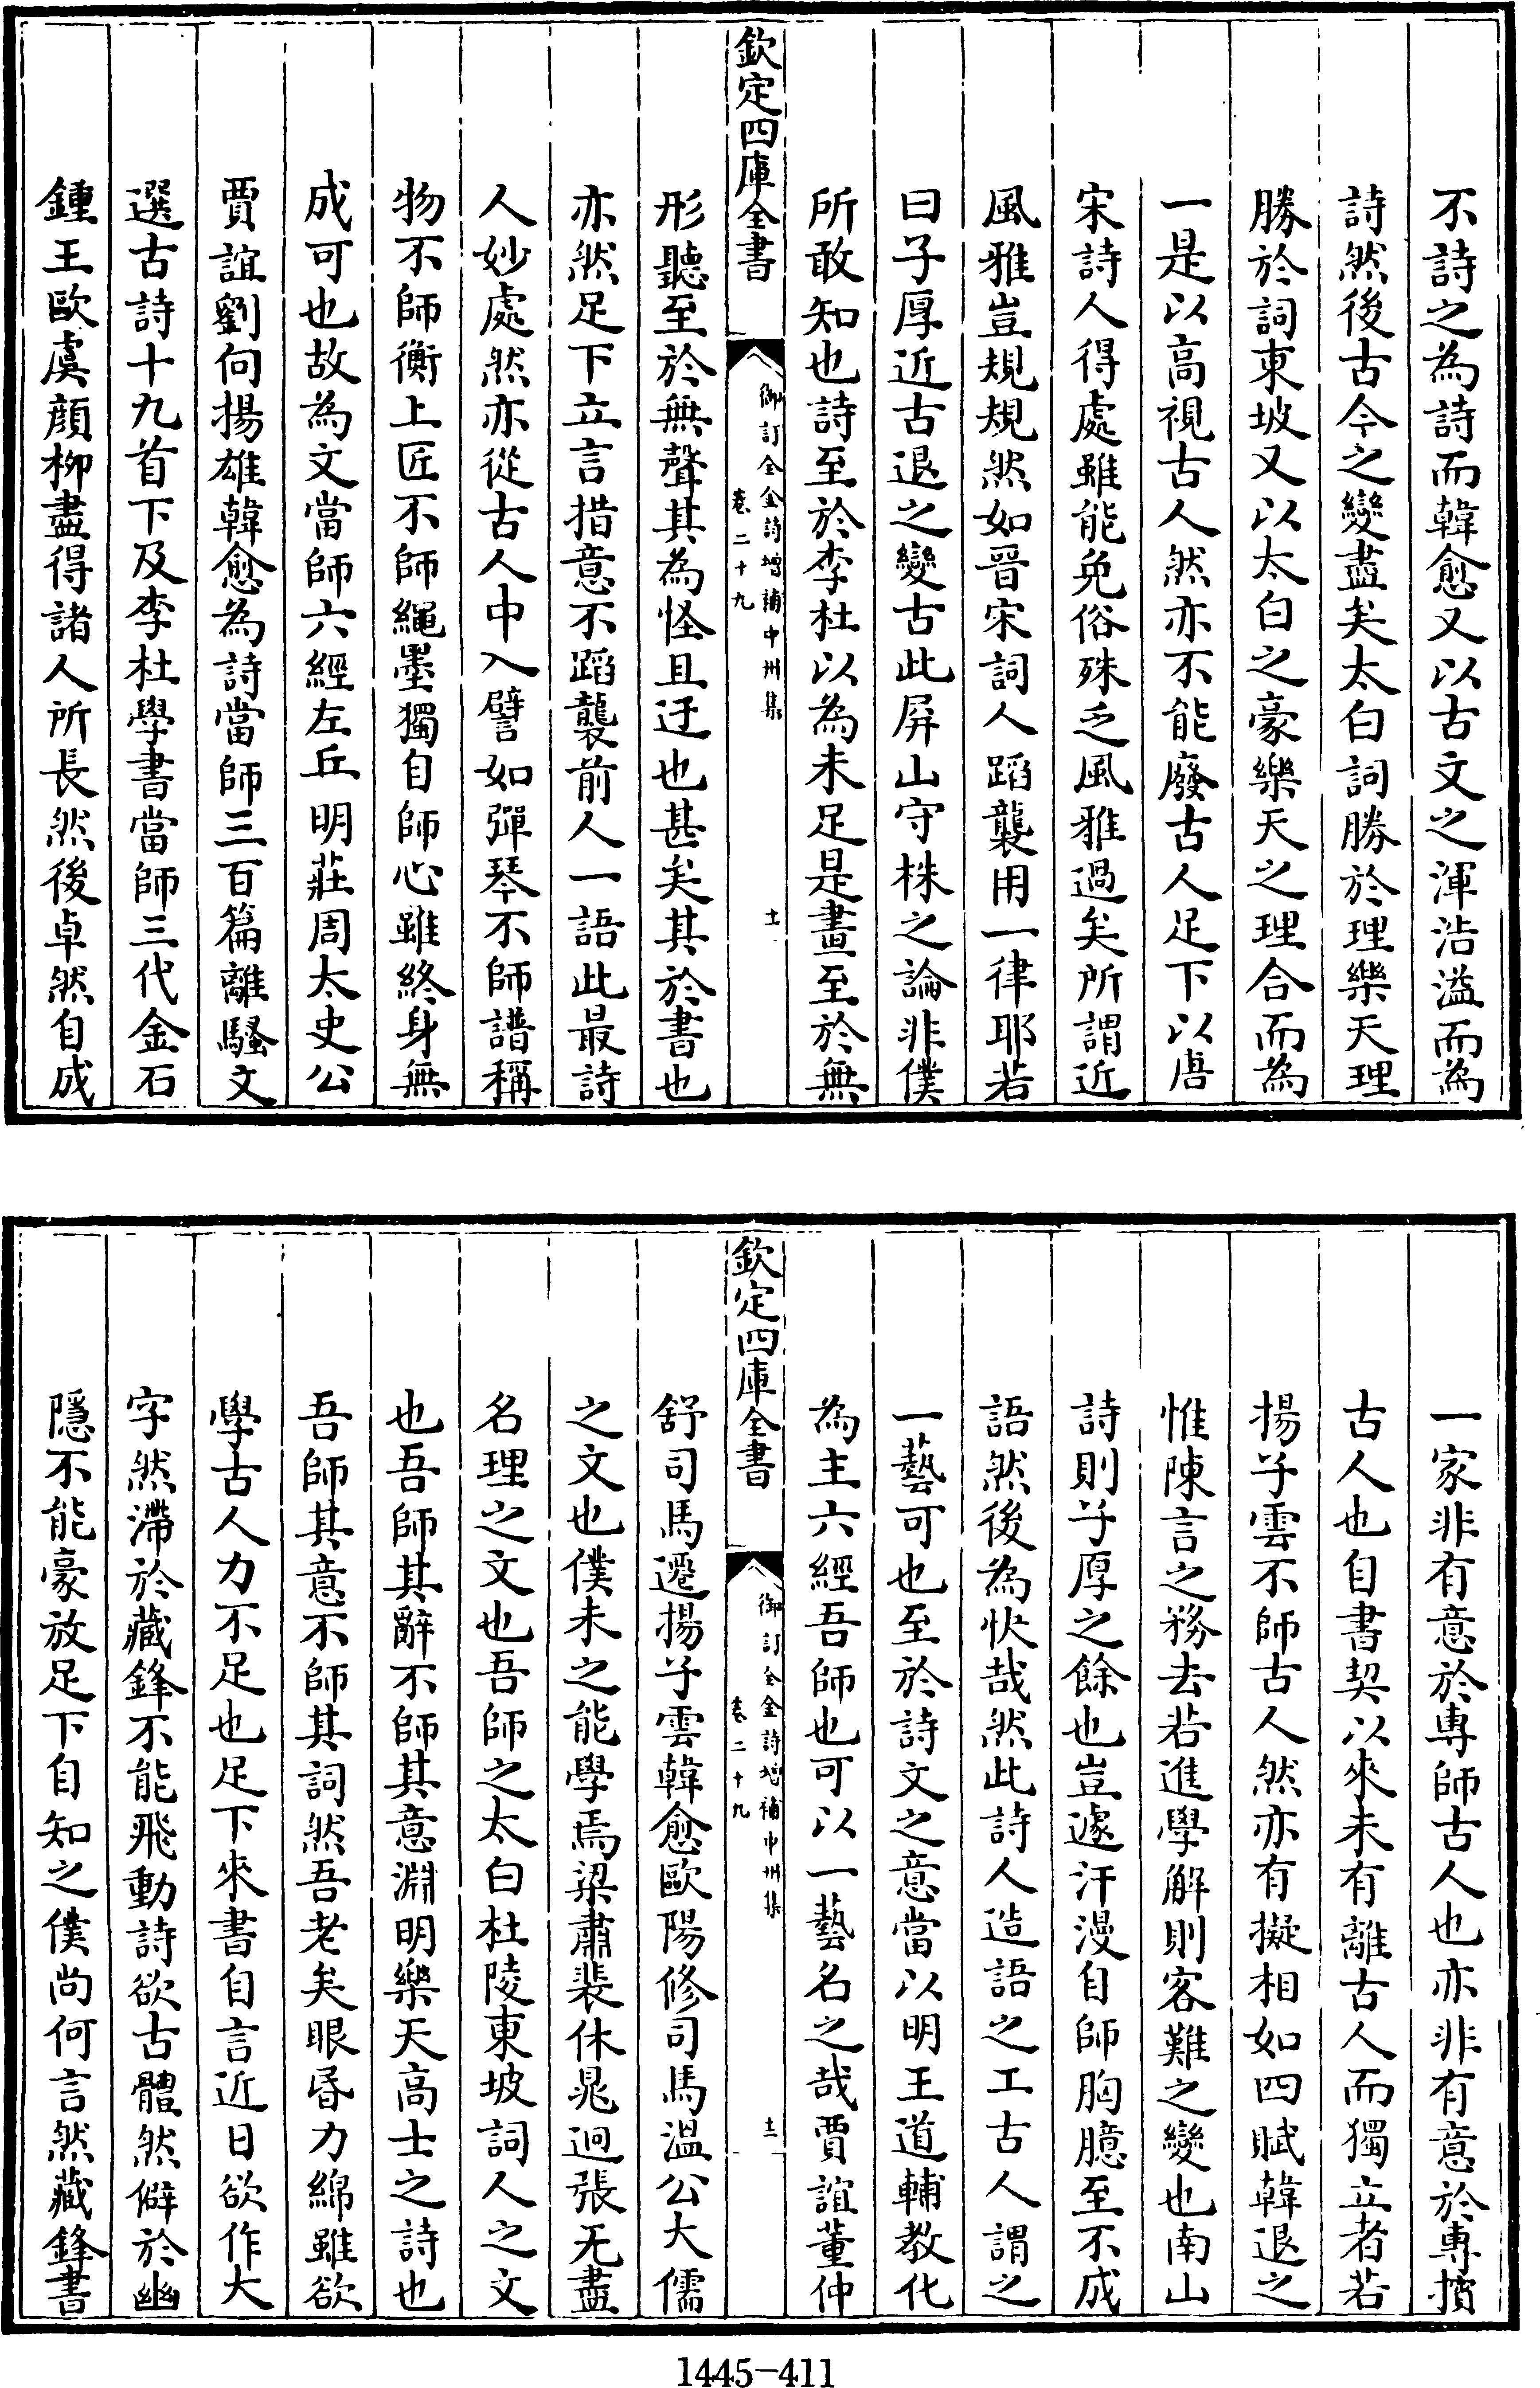 不詩之為詩而韓愈又以古文之渾浩溢而為
詩然後古今之變盡矣太白詞勝於理樂天理
勝於詞東坡又以太白之豪樂天之理合而為
一是以高視古人然亦不能廢古人足下以唐
宋詩人得處雖能免俗殊乏風雅過矣所謂近
風雅豈規規然如晉宋詞人蹈襲用一律耶若
曰子厚近古退之變古此屏山守株之論非僕
所敢知也詩至於李杜以為未足是畫至於無
欽定四庫全書
御訂全金詩增補中州集
卷二十九
十一
形聽至於無聲其為怪且迂也甚矣其於書也
亦然足下立言措意不蹈襲前人一語此最詩
人妙處然亦從古人中入譬如彈琴不師譜稱
物不師衡上匠不師繩墨獨自師心雖終身無
成可也故為文當師六經左丘明莊周太史公
賈誼劉向揚雄韓愈為詩當師三百篇離騷文
選古詩十九首下及李杜學書當師三代金石
鍾王歐虞顏柳盡得諸人所長然後卓然自成
一家非有意於專師古人也亦非有意於專擯
古人也自書契以來未有離古人而獨立者若
揚子雲不師古人然亦有擬相如四賦韓退之
惟陳言之務去若進學解則客難之變也南山
詩則子厚之餘也豈遽汗漫自師胸臆至不成
語然後為快哉然此詩人造語之工古人謂之
一藝可也至於詩文之意當以明王道輔教化
為主六經吾師也可以一藝名之哉賈誼董仲
欽定四庫全書
御訂全金詩增補中州集
卷二十九
十二
舒司馬遷揚子雲韓愈歐陽修司馬溫公大儒
之文也僕未之能學焉梁肅裴休晁迥張无盡
名理之文也吾師之太白杜陵東坡詞人之文
也吾師其辭不師其意淵明樂天高士之詩也
吾師其意不師其詞然吾老矣眼昏力綿雖欲
學古人力不足也足下來書自言近日欲作大
字然滯於藏鋒不能飛動詩欲古體然僻於幽
隱不能豪放足下自知之僕尚何言然藏鋒書
1445-411